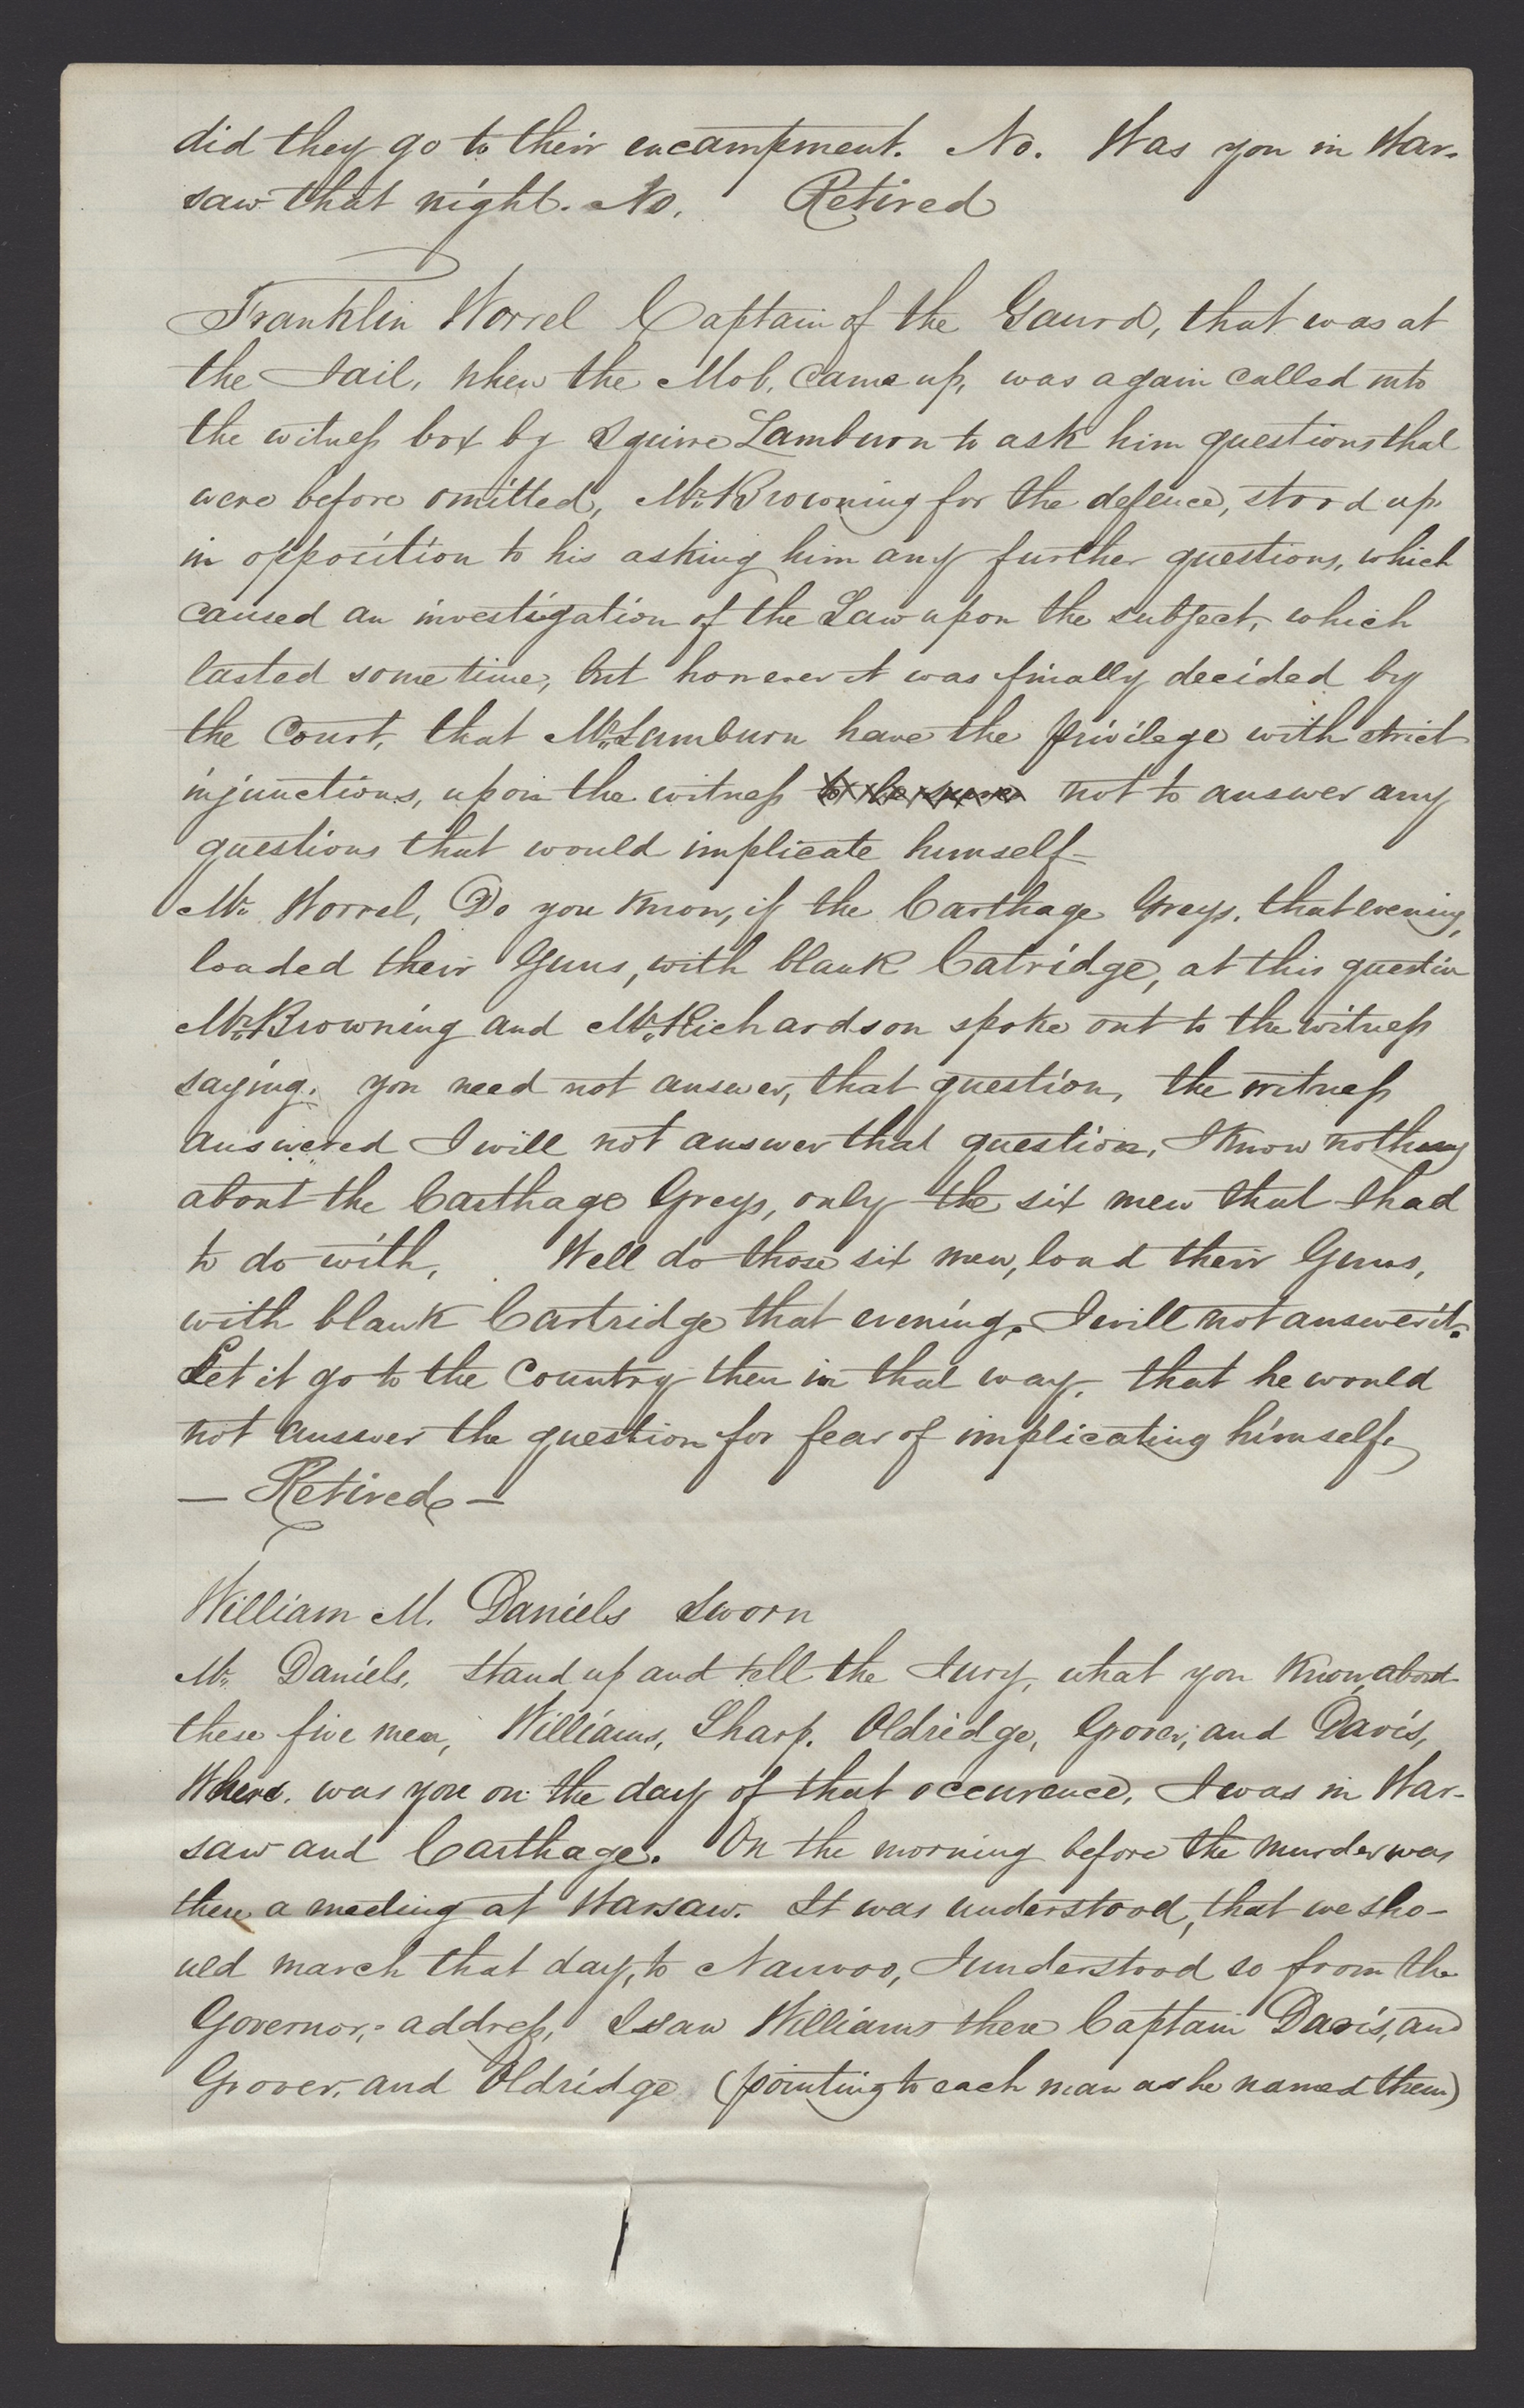 did they go to their encampment. No. Was you in War-
saw that night. No. Retired
Franklin Worrel Captain of the Gaurd, that was at
the Jail, when the Mob, came up, was again called into
the witness box by Squire Lamburn to ask him questions that
were before omitted, Mr. Browning for the defence, stood up
in opposition to his asking him any further questions, which
caused an investigation of the Law upon the subject, which
lasted some time, but however it was finally decided by
the Court, that Mr. Lamburn have the privilege with strict
injunctions, upon the witness to be sure not to answer any
questions that would implicate himself-
Mr. Worrel, Do you know, if the Carthage Greys, that evening,
loaded their Guns, with blank Catridge, at this question
Mr. Browning and Mr. Richardson spoke out to the witness
saying, you need not answer, that question, the witness
answered I will not answer that question, I know nothing
about the Carthage Greys, only the six men that I had
to do with, Well do those six men, load their Guns,
with blank Cartridge that evening. I will not answer it.
Let it go to the Country then in that way, that he would
not answer the question for fear of implicating himself.
— Retired —
William M. Daniels Sworn
Mr. Daniels, stand up and tell the Jury, what you know, about
these five men, Williams, Sharp, Oldridge, Grover, and Davis,
Where was you on the day of that occurence, I was in War-
saw and Carthage. On the morning before the murder was
there a meeting at Warsaw. It was understood, that we sho-
uld march that day, to Nauvoo, I understood so from the
Governor,s address, I saw Williams there Captain Davis, and
Grover, and Oldridge (pointing to each man as he named them)